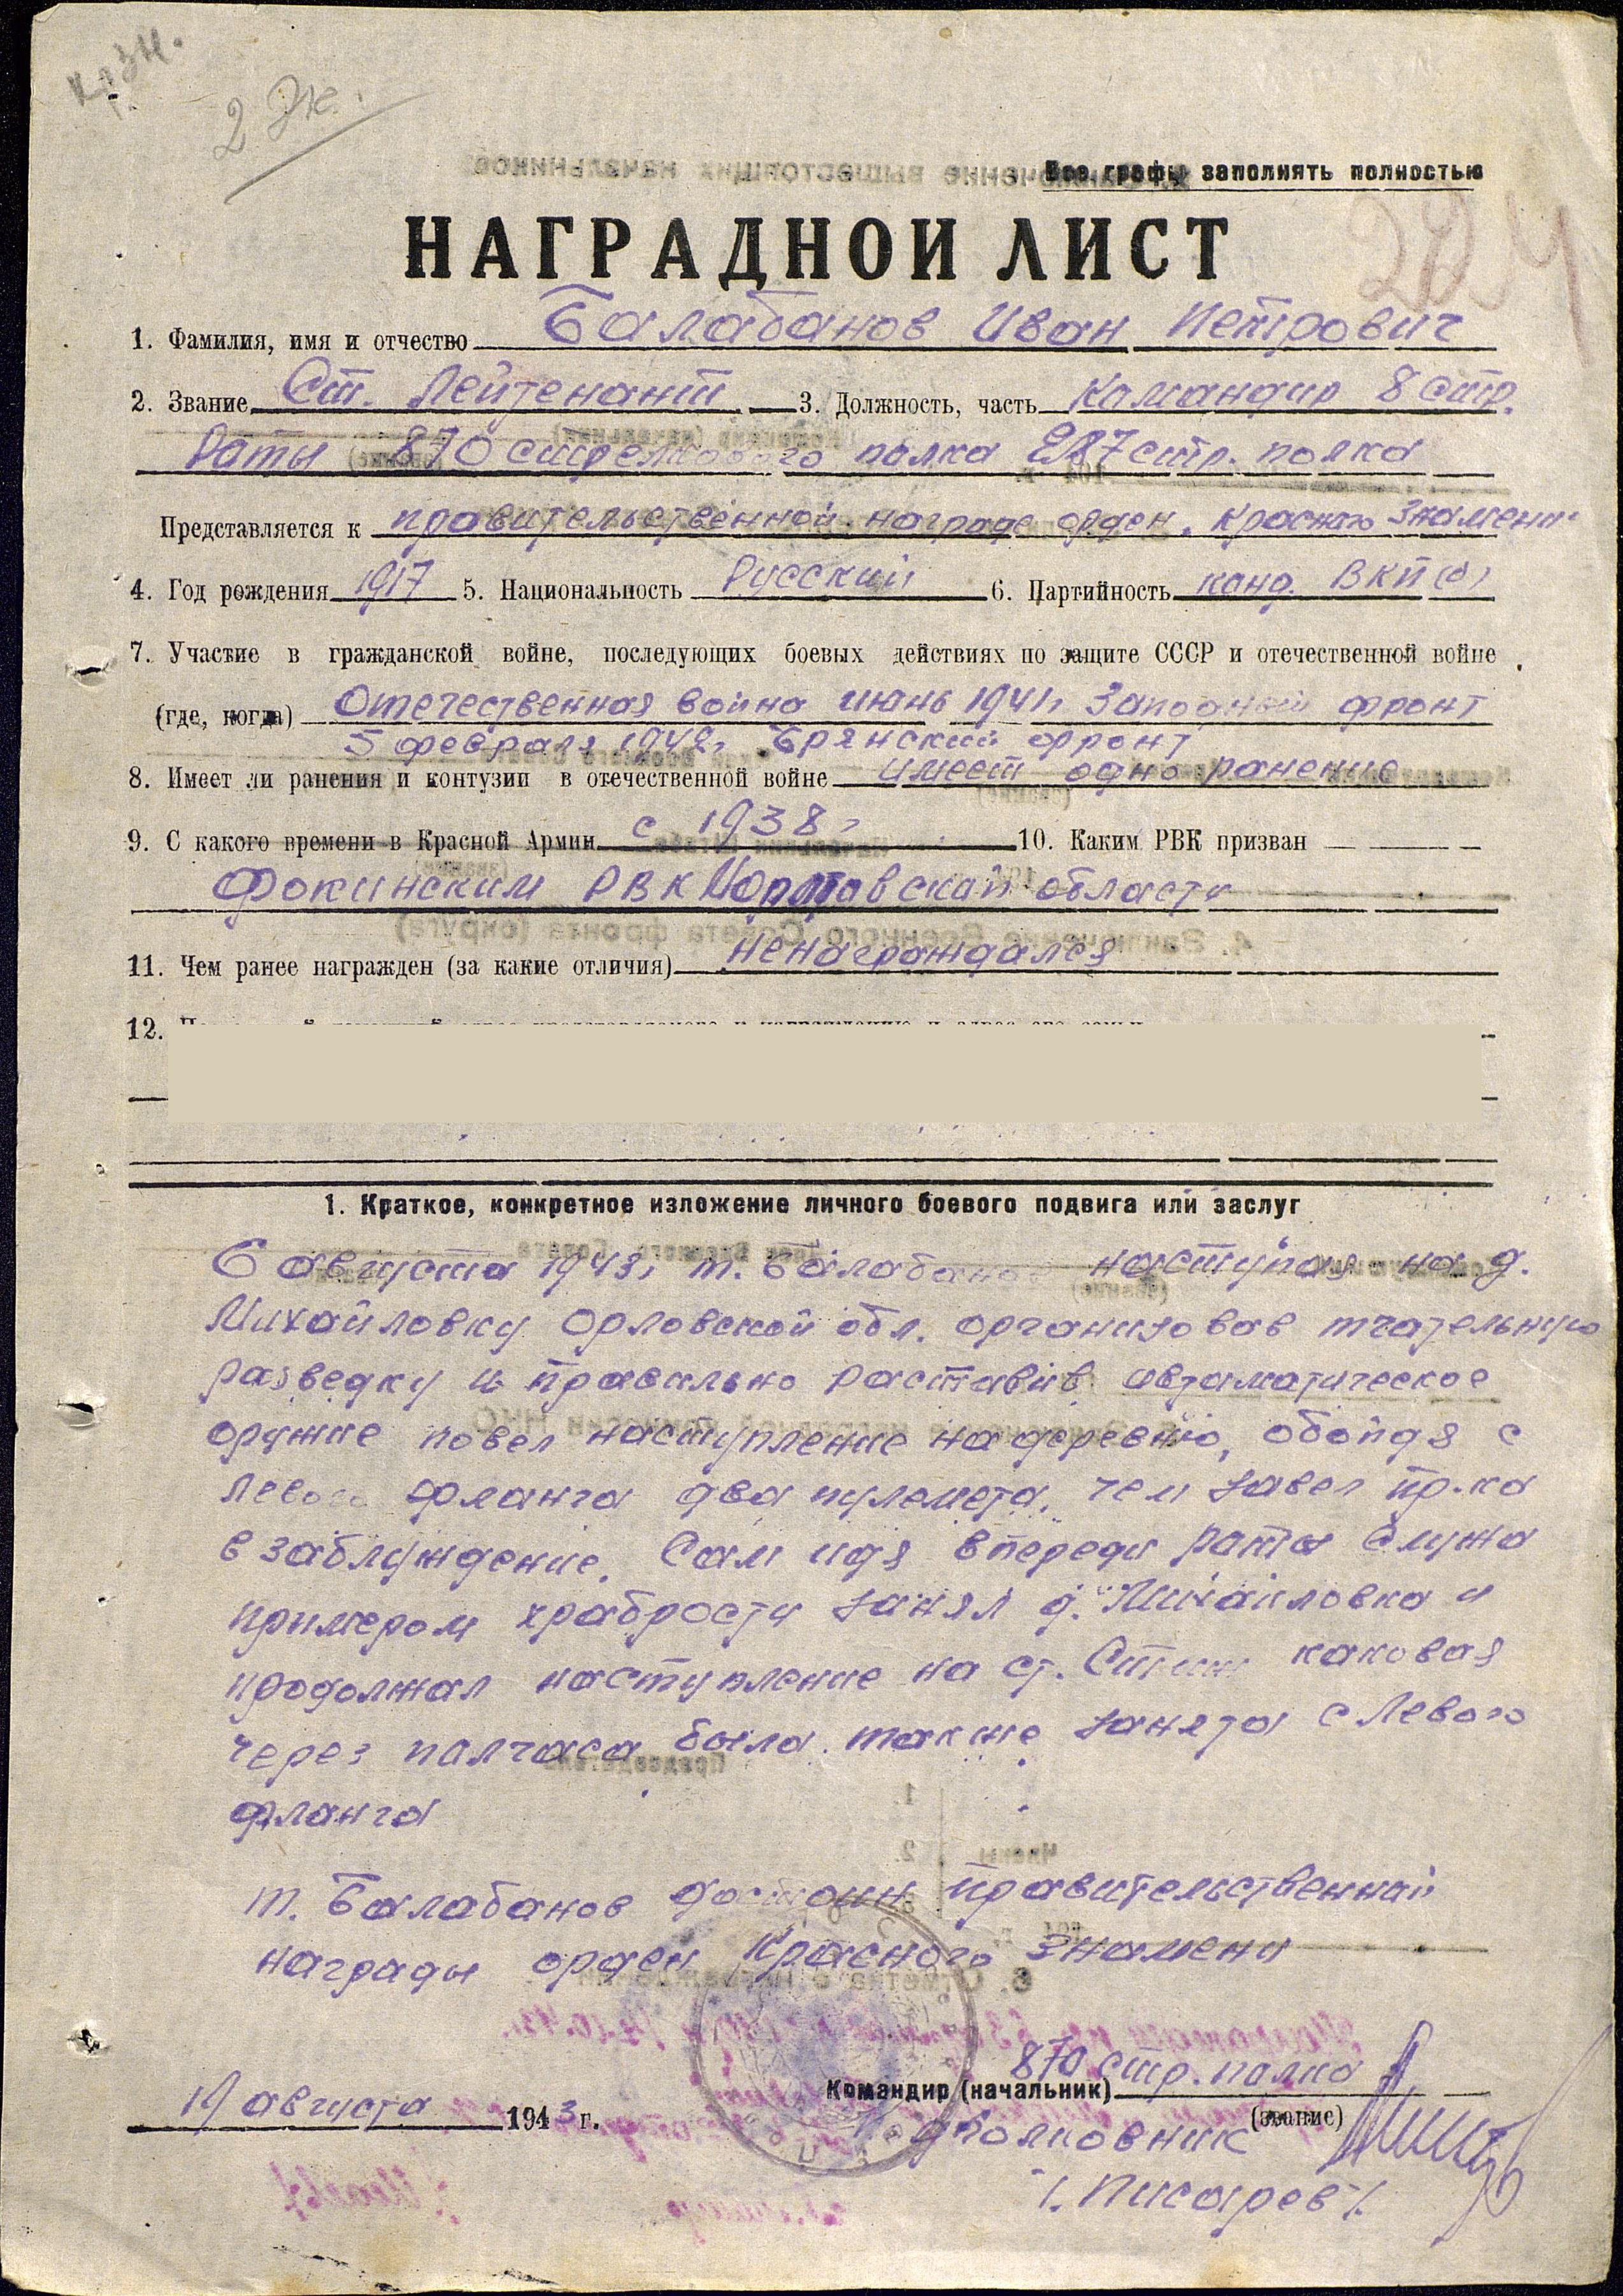 2 Эк.
Все графы заполнять полностью
НАГРАДНОЙ ЛИСТ
224
1. Фамилия, имя и отчество Балабанов Иван Петрович
2. Звание Ст. Лейтенант 3. Должность, часть Командир 8 стр.
Роты 870 стрелкового полка 287 стр. полка
Представляется к правительственной награде орден. Красного Знамени
4. Год рождения 1917 5. Национальность Русский 6. Партийность канд. ВКП(б)
7. Участие в гражданской войне, последующих боевых действиях по защите СССР и отечественной войне
(где, когда) Отечественная война июнь 1941г Западный фронт
5 февраля 1942г Брянский фронт
8. Имеет ли ранения и контузии в отечественной войне имеет одно ранение
9. С какого времени в Красной Армии с 1938г 10. Каким РВК призван
Фокинским РВК области
11. Чем ранее награжден (за какие отличия) ненаграждался
12.
1. Краткое, конкретное изложение личного боевого подвига или заслуг
6 августа 1943г т. Балабанов наступая на д.
Михайловку Орловской обл. организовав тчательную
разведку и правильно раставив автоматическое
оружие повел наступление на деревню, обойдя с
левого фланга два пулемета, чем завел пр-ка
в заблуждение. Сам идя впереди роты служа
примером храбрости занял д. Михайловка и
продолжал наступление на ст. каковая
через полчаса была также занята с левого
фланга
т. Балабанов достоин правительственной
награды орден Красного Знамени
870 стр. полка
Командир (начальник)
(звание)
19 августа 1943 г.
Полковник
/. Писарев /.